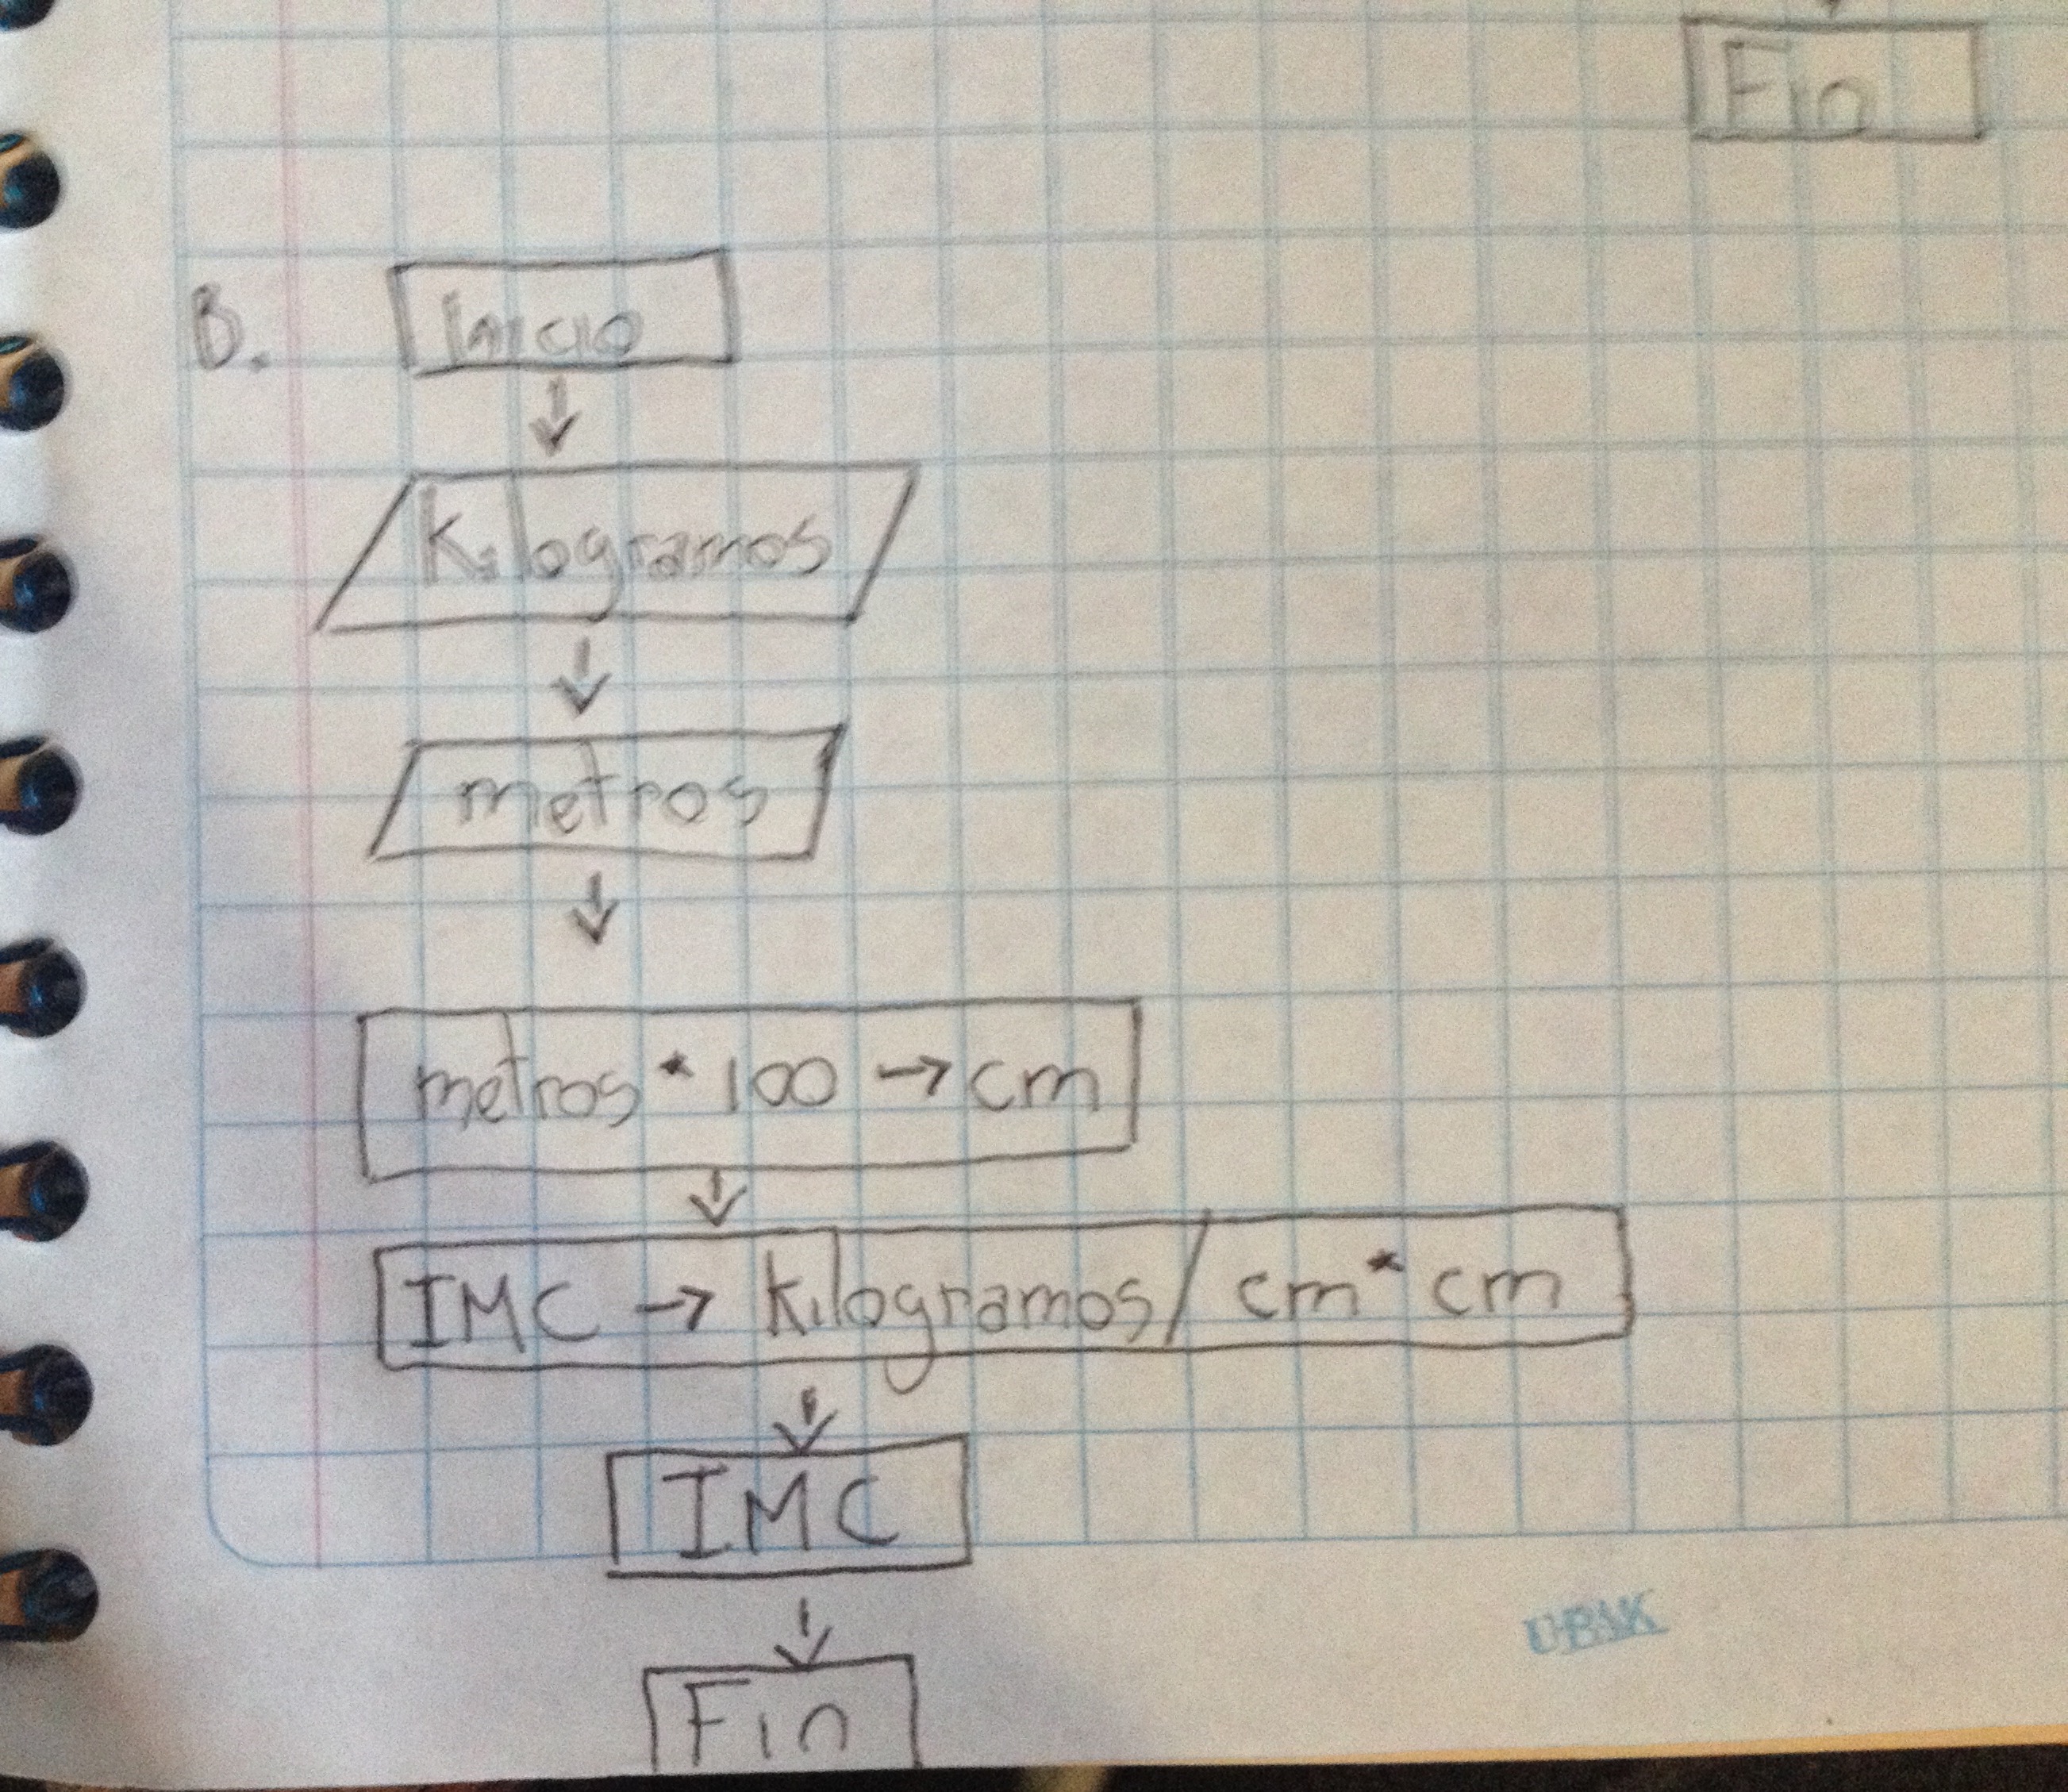 Fin
B. Inicio
Kilogramos
metros
metros * 100 → cm
IMC → Kilogramos / cm * cm
IMC
U-PAK
Fin